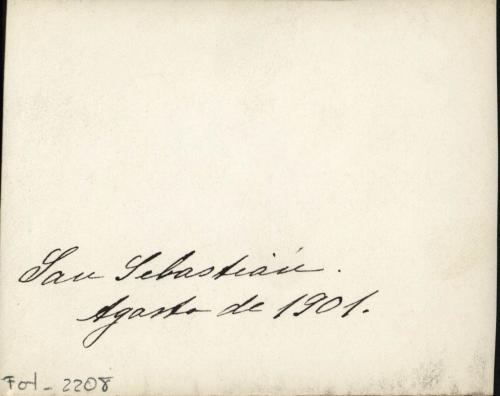 San Sebastián.
Agosto de 1901.
Fot - 2208